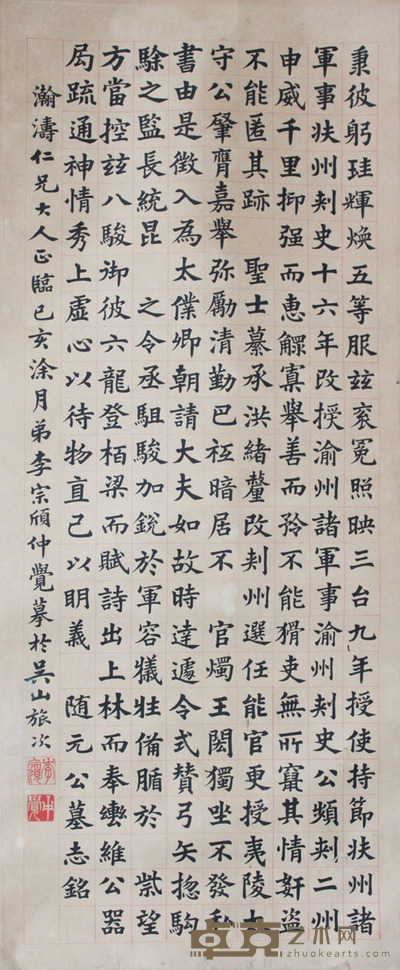 秉彼躬珪輝煥五等服玆衮冕照映三台九年授使持節扶州諸
軍事扶州刾史十六年改授渝州諸軍事渝州刾史公頻刾二州
申威千里抑强而惠鰥寡舉善而矜不能猾吏無所竄其情奸盗
不能匿其跡 聖士纂承洪緒釐改刾州選任能官更授夷陵太
守公肇膺嘉舉弥勵清勤巴祗暗居不 官燭王閎獨坐不發私
書由是徵入為太僕卿朝請大夫如故時達遽令式賛弓矢揔駒
駼之監長統昆 之令丞駔駿加銳於軍容犠牲俻腯於 祡望
方當控玆八駿御彼六龍登栢梁而賦詩出上林而奉轡維公器
局疏通神情秀上虚心以待物直己以明義 随元公墓志銘
瀚濤仁兄大人正臨己亥涂月弟李宗頎仲覺摹於吴山旅次
卓克艺术网
zhuokearts.com